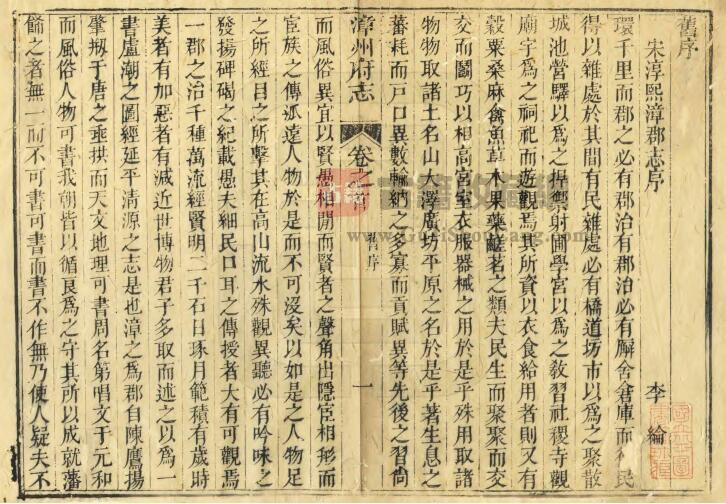 舊序
宋淳熙漳郡志序
李綸
環千里而郡之必有郡治有郡治必有廨舍倉庫而 民
得以雜處於其間有民雜處必有橋道坊市以爲之聚散
城池營驛以爲之捍禦射圃學宮以爲之敎習社稷寺觀
廟宇爲之祠祀而遊觀焉其所資以衣食給用者則又有
穀粟桑麻禽魚草木果藥鹺茗之類夫民生而聚聚而交
交而鬬巧以相高宮室衣服器械之用於是乎殊用取諸
物物取諸土名山大澤廣坊平原之名於是乎著生息之
蕃耗而戸口異數輸納之多寡而貢賦異等先後之習尙
漳州府志
卷之首
舊序
一
而風俗異宜以賢愚相閒而賢者之聲角出隱宦相形而
宦族之傳派遠人物於是而不可沒矣以如是之人物足
之所經目之所擊其在高山流水殊觀異聽必有吟咏之
發揚碑碣之紀載愚夫細民口耳之傳授者大有可觀焉
一郡之治千種萬流經賢明二千石日琢月範積有歲時
美者有加惡者有滅近世博物君子多取而述之以爲一
書盧潮之圖經延平淸源之志是也漳之爲郡自陳鷹揚
肇剏于唐之垂拱而天文地理可書周名第唱文于元和
而風俗人物可書我朝皆以循良爲之守其所以成就藩
餙之者無一而不可書可書而書不作無乃使人疑夫不
古籍收藏網
www.GuJiShouCang.com